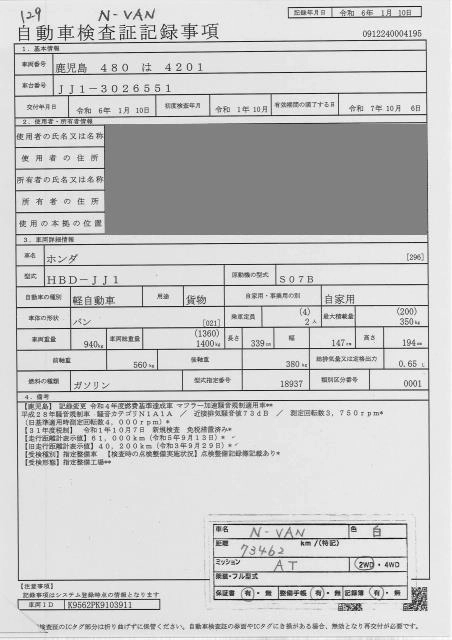 129 N-VAN
記録年月日 令和 6年 1月 10日
自動車検査証記録事項
0912240004195
1. 基本情報
車両番号 鹿児島 480 は 4201
車台番号 JJ1-3026551
交付年月日 令和 6年 1月 10日 初度検査年月 令和 1年 10月 有効期間の満了する日 令和 7年 10月 6日
2. 使用者・所有者情報
使用者の氏名又は名称
使用者の住所
所有者の氏名又は名称
所有者の住所
使用の本拠の位置
3. 車両詳細情報
車名 ホンダ [296]
型式 HBD-JJ1 原動機の型式 S07B
自動車の種別 軽自動車 用途 貨物 自家用・事業用の別 自家用
車体の形状 バン [021] 乗車定員 (4) 2人 最大積載量 (200) 350kg
車両重量 940kg 車両総重量 (1360) 1400kg 長さ 339cm 幅 147cm 高さ 194cm
前軸重 560kg 後軸重 380kg 総排気量又は定格出力 0.65L
燃料の種類 ガソリン 型式指定番号 18937 類別区分番号 0001
4. 備考
【鹿児島】 記録変更 令和4年度燃費基準達成車 マフラー加速騒音規制適用車**
平成28年騒音規制車 騒音カテゴリN1A1A / 近接排気騒音値73dB / 測定回転数3,750rpm*
(旧基準適用時測定回転数4,000rpm)*
【31年度税制】 令和1年10月7日 新規検査 免税措置済み*
【走行距離計表示値】61,000km(令和5年9月13日)*
【旧走行距離計表示値】40,200km(令和3年9月29日)*
【受検種別】指定整備車 【検査時の点検整備実施状況】点検整備記録簿記載あり*
【受検形態】指定整備工場**
車名 N-VAN 色 白
距離 73462 km/(特記)
ミッション AT 2WD・4WD
架装・フル型式
保証書 有・無 整備手帳 有・無 記録簿 有・無
【注意事項】
記録事項はシステム登録時点の情報となります
車両ID K9562PK9103911
検査証のICタグ部分は折り曲げずに保管ください。自動車検査証の券面やICタグにき損がある場合、無効となり再交付が必要です。